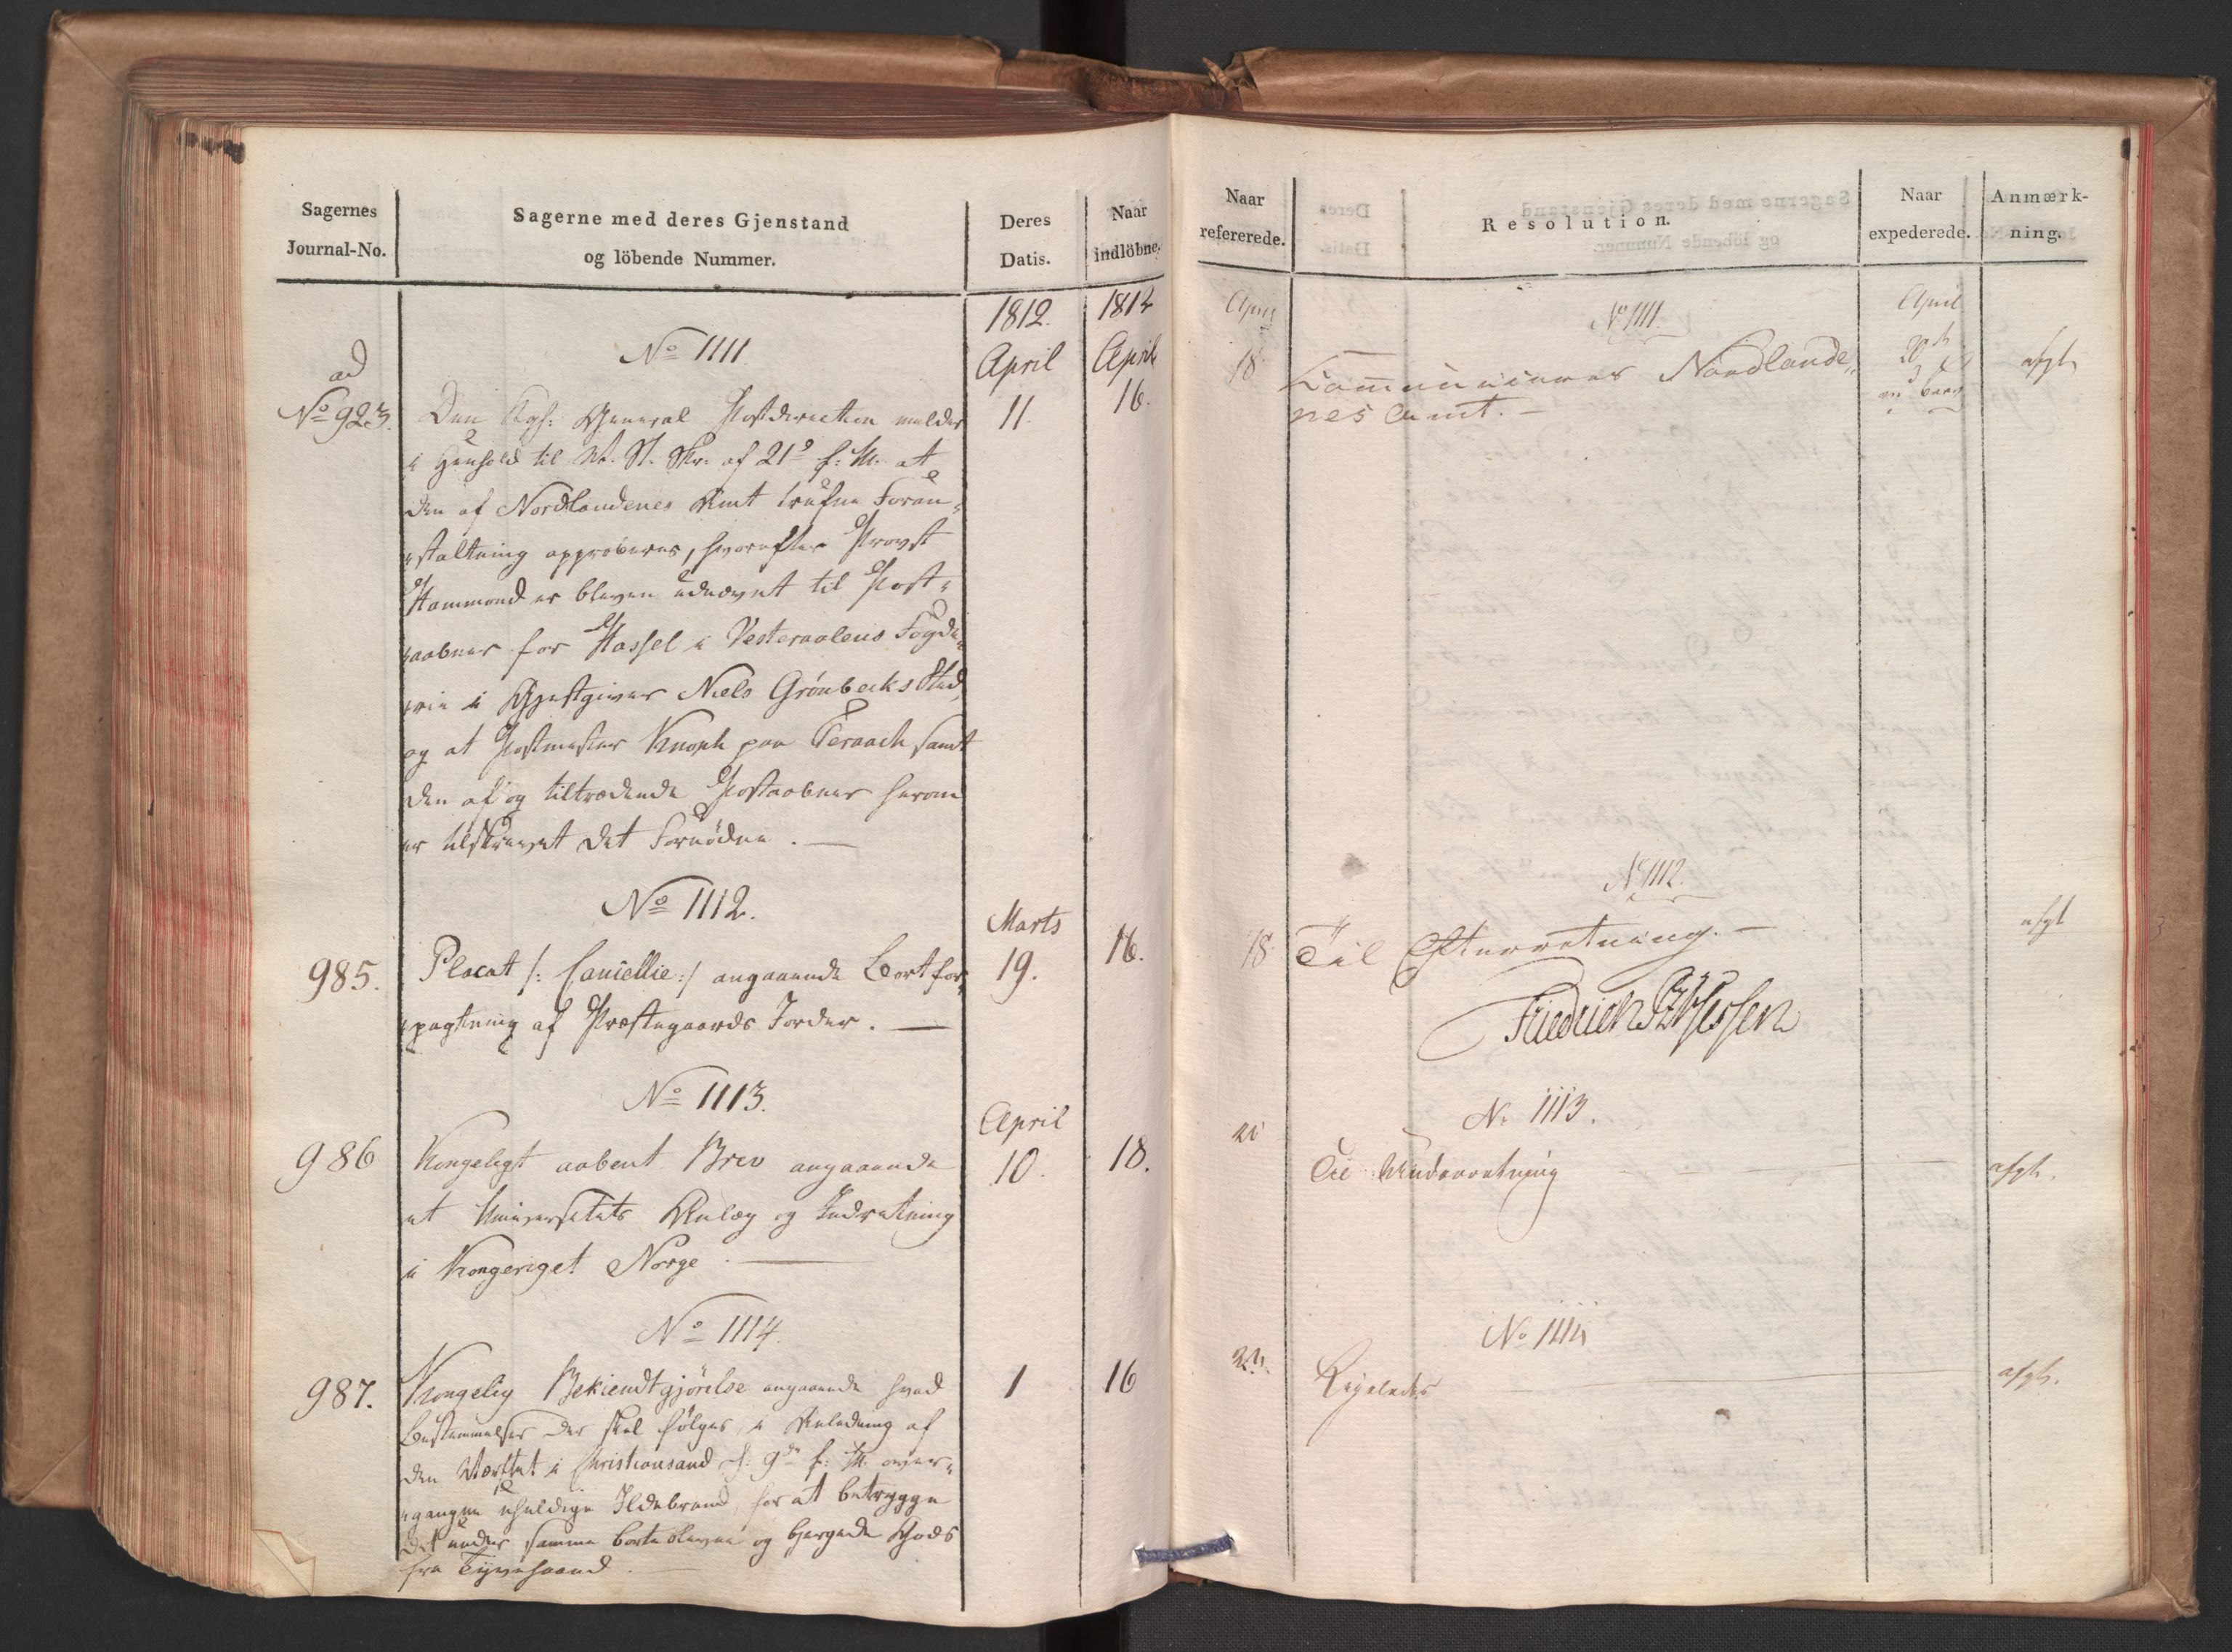 Sagernes
Journal-No.
Sagerne med deres Gjenstand
og löbende Nummer.
Deres
Datis.
Naar
indlöbne.
1812
1812
No 1111
April
April
ad
No 923.
Den Kgl: General Postdirection melder
11.
16.
i Henhold til af 21de f: M. at
den af Nordlandenes Amt trufne Foran-
staltning approberes, hvorefter Provst
Hammond er bleven udnævnt til Post-
aabner for Hassel i Vesteraalens Fogde-
rie i Gjestgiver Niels Grönbecks Sted,
og at Postmester Knoph paa Teraach samt
den af og tiltrædende Postaabner herom
er tilskrevet det Fornödne. —
No 1112.
Marts
985.
Placat /: Cancellie:/ angaaende Bortfor-
19.
16.
pagtning af Præstegaards Jorder. —
No 1113.
April
986
Kongeligt aabent Brev angaaende
10.
18.
et Universitets Anlæg og Indretning
i Kongeriget Norge. —
No 1114.
987.
Kongelig Bekiendtgjörelse angaaende hvad
1
16
Bestemmelser der skal fölges, i Anledning af
den Værftet i Christiansand d: 9de f: M. over-
gangne uheldige Ildebrand, for at betrygge
det under samme bortebleven og bjergede Gods
fra Tyvehaand. —
Naar
refererede.
Resolution.
Naar
expederede.
Anmærk-
ning.
April
No 1111.
April
18
Communiceres Nordlande-
20de
afgt
nes Amt. —
No 1112.
18
Til Efterretning. —
afgt
Friedrich
No 1113.
21
Til Underretning —
afgt.
No 1114
21.
Ligeledes —
afgt.